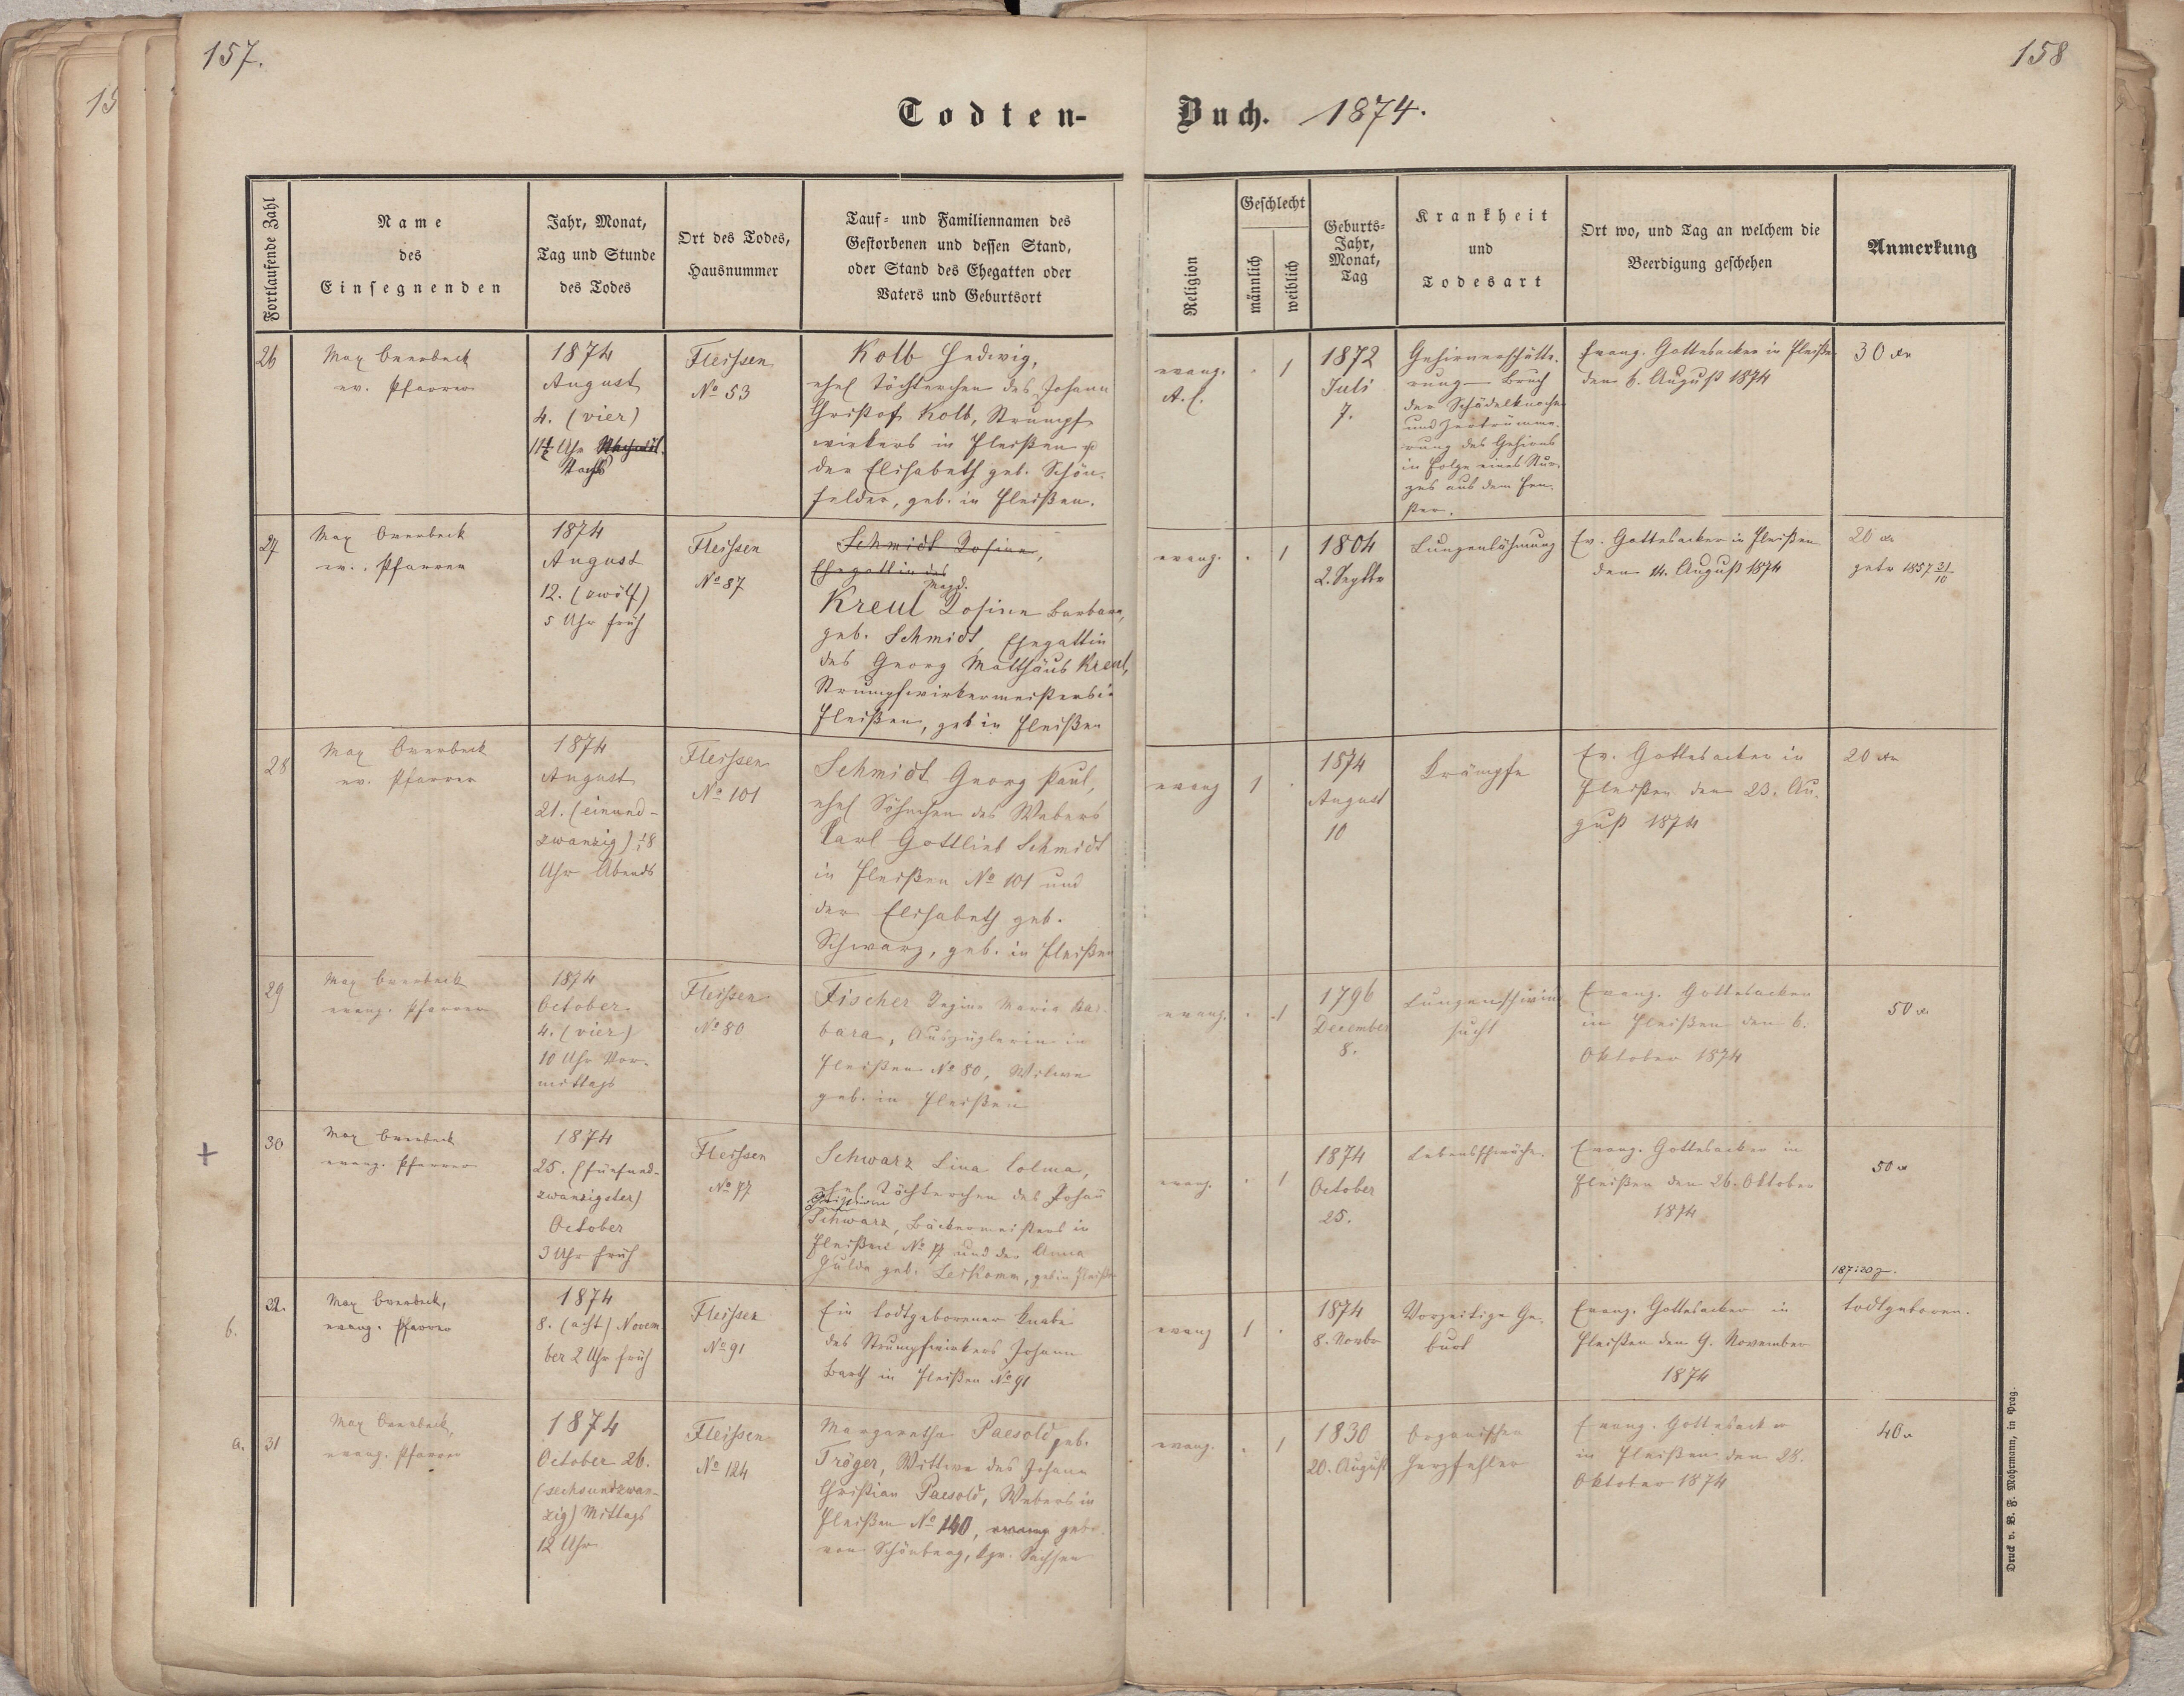 157.
158
Todten-
Buch. 1874.
Fortlaufende Zahl
Name
des
Einsegnenden
Jahr, Monat,
Tag und Stunde
des Todes
Ort des Todes,
Hausnummer
Tauf- und Familiennamen des
Gestorbenen und dessen Stand,
oder Stand des Ehegatten oder
Vaters und Geburtsort
Religion
Geschlecht
männlich
weiblich
Geburts-
Jahr,
Monat,
Tag
Krankheit
und
Todesart
Ort wo, und Tag an welchem die
Beerdigung geschehen
Anmerkung
26
Max Overbeck
ev. Pfarrer
1874
August
4. (vier)
Uhr
Nachts
Fleissen
No 53
Kolb Hedwig,
ehel Töchterchen des Johann
Christof Kolb, Strumpf
wirkers in Fleißen
der Elisabeth geb. Schön-
felder, geb. in Fleißen.
evang.
A. C.
. 1
1872
Juli
7.
Gehirnerschütte-
rung – Bruch
der Schädelknochen
und Zertrümme-
rung des Gehirns
in Folge eines Stur-
zes aus dem Fen-
ster.
Evang. Gottesacker in Fleißen
den 6. August 1874
30 xr
27
Max Overbeck
ev. Pfarrer
1874
August
12. (zwölf)
5 Uhr früh
Fleissen
No 87
Schmidt Rosina,
Ehegattin des
Magd.
Kreul Rosine Barbara,
geb. Schmidt, Ehegattin
des Georg Matthäus Kreul,
Strumpfwirkermeisters in
Fleißen, geb in Fleißen
evang.
. 1
1804
2. Septbr
Lungenlähmung
Ev. Gottesacker in Fleißen
den 14. August 1874
20 xr
getr 1857 31/10
28
Max Overbeck
ev. Pfarrer
1874
August
21. (einund-
zwanzig) 8
Uhr Abends
Fleissen
No 101
Schmidt Georg Paul,
ehel Söhnchen des Webers
Karl Gottlieb Schmidt
in Fleißen No 101 und
der Elisabeth geb.
Schwarz, geb. in Fleißen
evang
1 .
1874
August
10
Krämpfe
Ev. Gottesacker in
Fleißen den 23. Au-
gust 1874
20 xr
29
Max Overbeck
evang. Pfarrer
1874
October
4. (vier)
10 Uhr Vor-
mittags
Fleissen
No 80
Fischer Regina Maria Bar-
bara, Auszüglerin in
Fleißen No 80, Witwe
geb. in Fleißen
evang.
. 1
1796
December
8.
Lungenschwind
sucht
Evang. Gottesacker
in Fleißen den 6.
Oktober 1874
50 xr
+
30
Max Overbeck
evang. Pfarrer
1874
25. (fünfund-
zwanzigster)
October
3 Uhr früh
Fleissen
No 77
Schwarz Lina Colma,
ehel Töchterchen des Johann
Schwarz, Bäckermeisters in
Fleißen No 77 und der Anna
Hulda geb. Leikomm, geb in Fleißen
evang.
. 1
1874
October
25.
Lebensschwäche.
Evang. Gottesacker in
Fleißen den 26. Oktober
1874
50 xr
b.
32.
Max Overbeck,
evang. Pfarrer
1874
8. (acht) Novem-
ber 2 Uhr früh
Fleissen
No 91
Ein todtgeborener Knabe
des Strumpfwirkers Johann
Barth in Fleißen No 91
evang
1 .
1874
8. Novbr
Vorzeitige Ge-
burt
Evang. Gottesacker in
Fleißen den 9. November
1874
todtgeboren.
a.
31
Max Overbeck,
evang. Pfarrer
1874
October 26.
(sechsundzwan-
zig) Mittags
12 Uhr
Fleissen
No 124
Margarethe Paesold geb.
Tröger, Wittwe des Johann
Christian Paesold, Webers in
Fleißen No 140, geb.
von Schönberg, Kgr. Sachsen
evang.
. 1
1830
20. August
Organischer
Herzfehler
Evang. Gottesacker
in Fleißen den 28.
Oktober 1874
40 xr
Druck v. B. F. Mohrmann, in Prag.